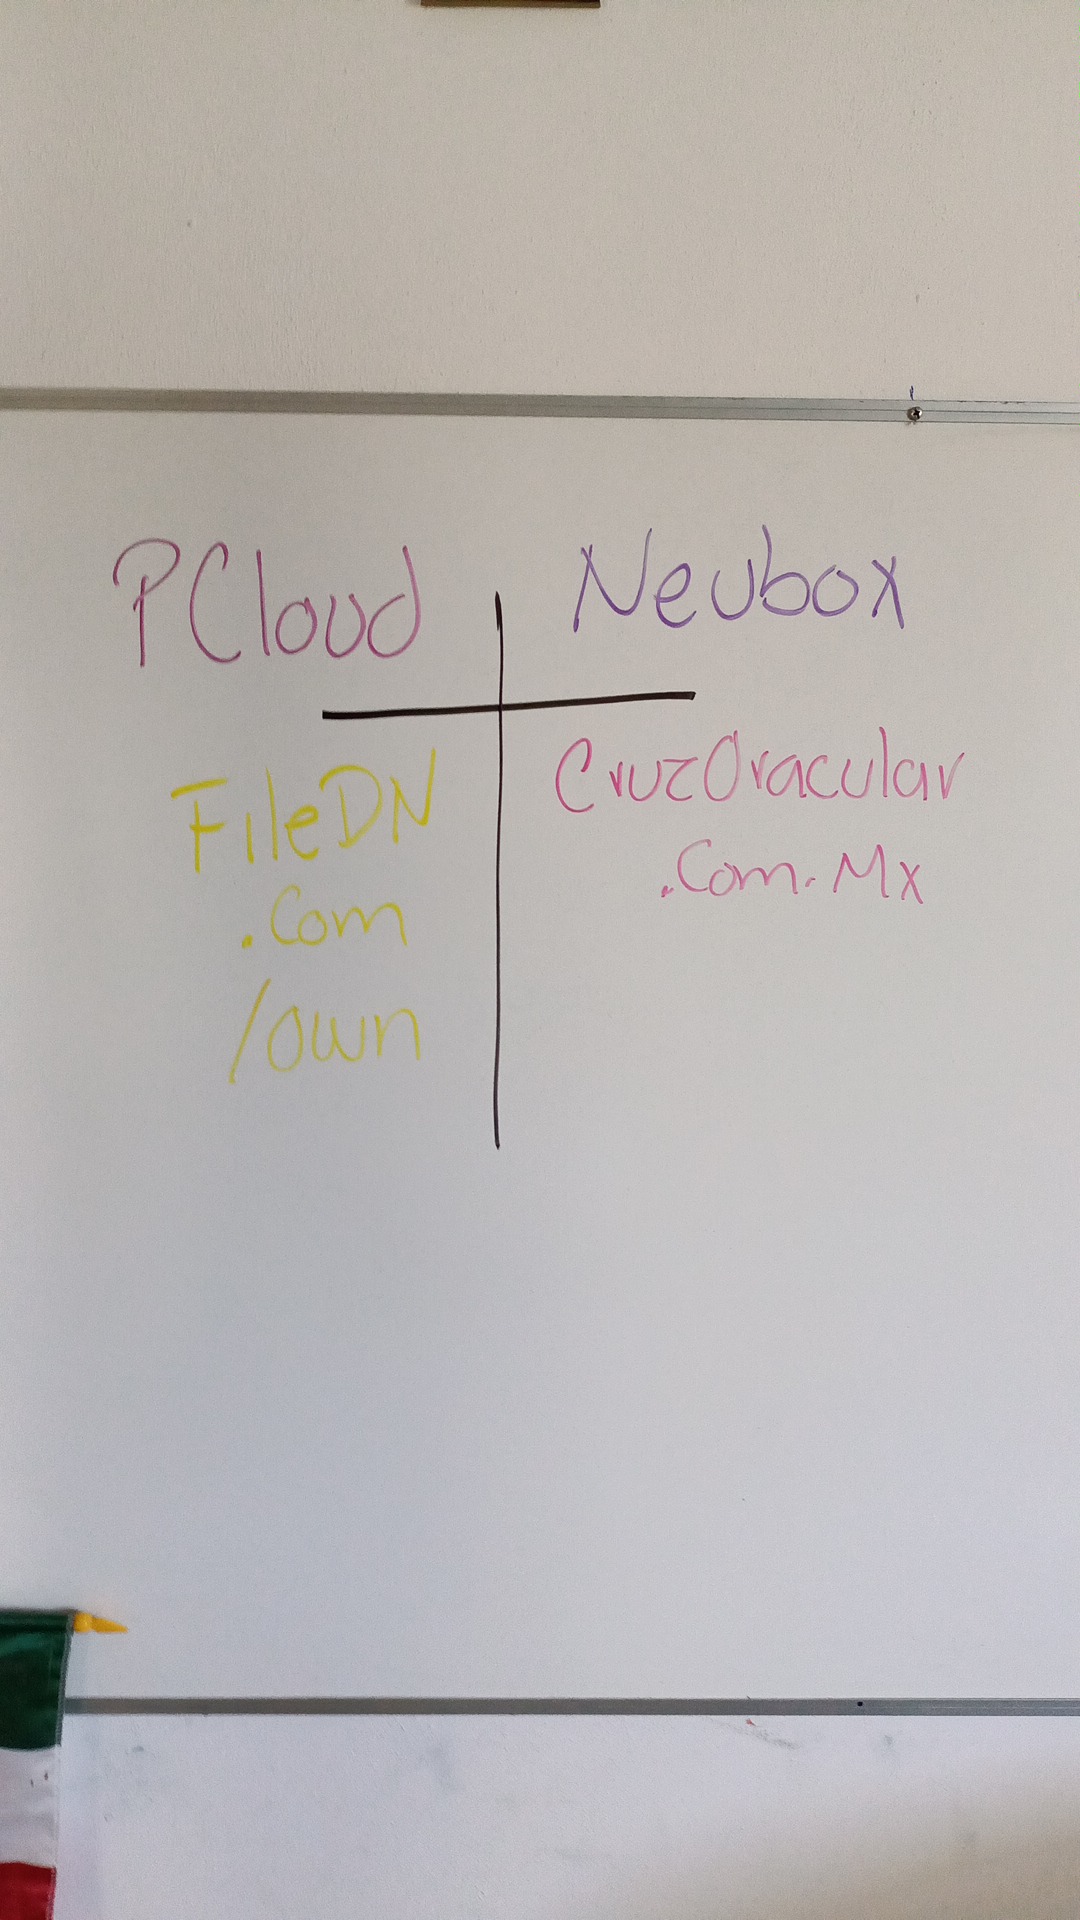 PCloud
Neubox
FileDN
.Com
/own
CruzOracular
.Com.Mx